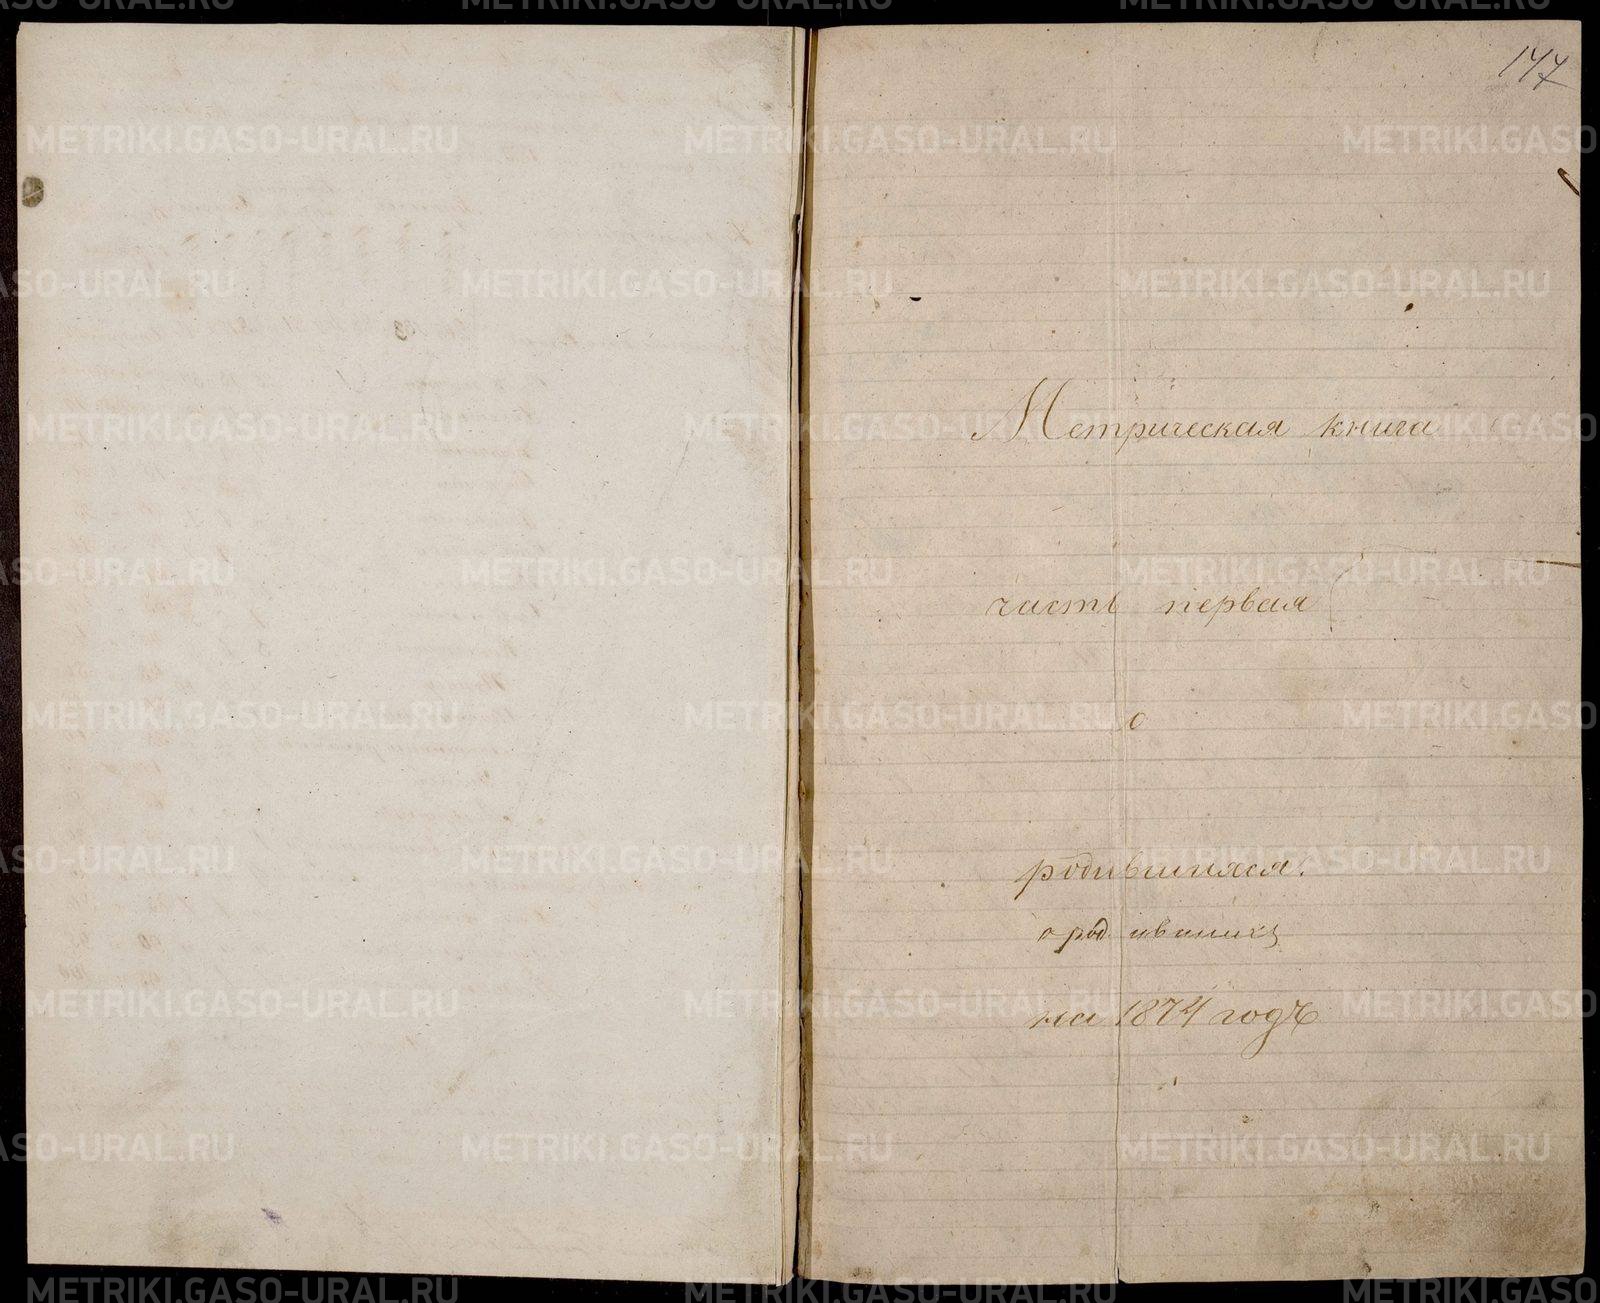 147
Метрическая книга
часть первая
о
родившихся.
о родившихъ
на 1874 годъ
METRIKI.GASO-URAL.RU